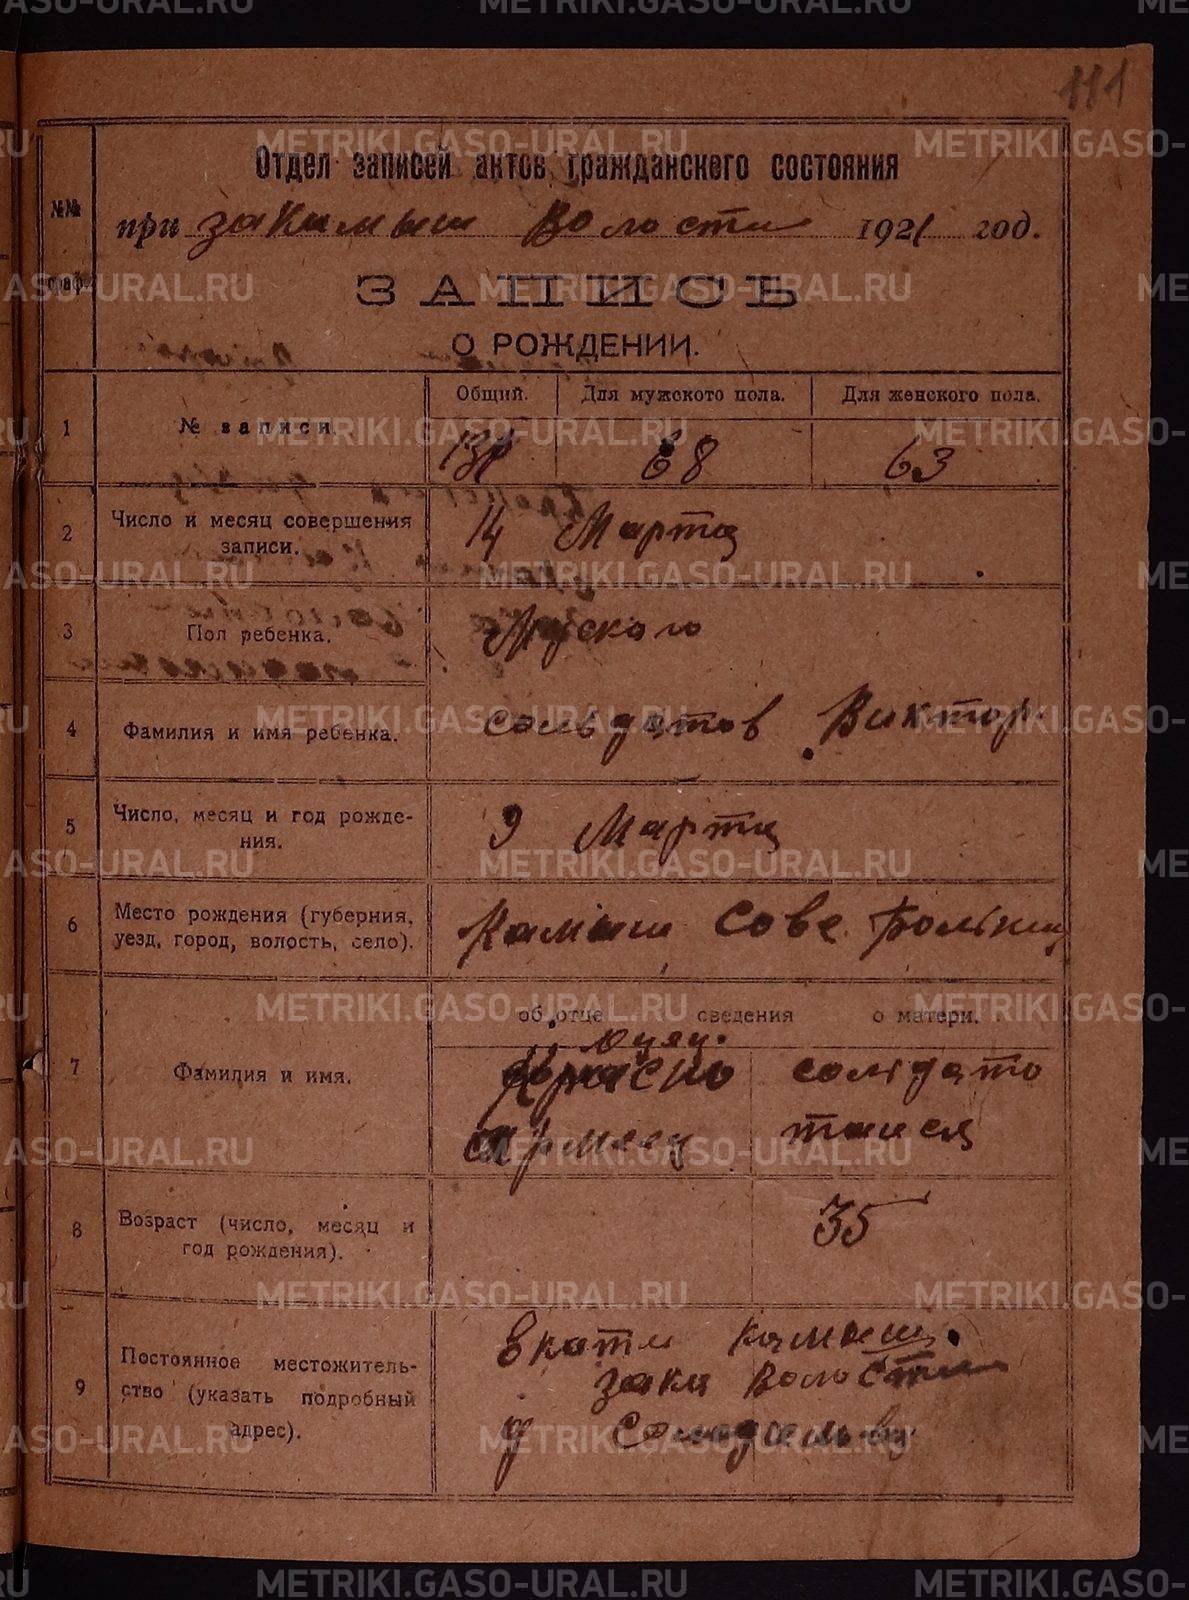 111
Отдел записей актов гражданского состояния
№№ граф.
при закамыш Волости 1921 год.
ЗАПИСЬ
О РОЖДЕНИИ.
Общий. Для мужского пола. Для женского пола.
1 № записи. 131 68 63
2 Число и месяц совершения
записи. 14 Марта
3 Пол ребенка. Муского
4 Фамилия и имя ребенка. сольдатов Виктор.
5 Число, месяц и год рожде-
ния. 9 Марта
6 Место рождения (губерния,
уезд, город, волость, село). Камыш Сове Больниц
об отце сведения о матери.
7 Фамилия и имя. Красно сольдато
армеец таися
8 Возраст (число, месяц и
год рождения). 35
9 Постоянное местожитель-
ство (указать подробный
адрес). Екати камыш.
зака волости
METRIKI.GASO-URAL.RU